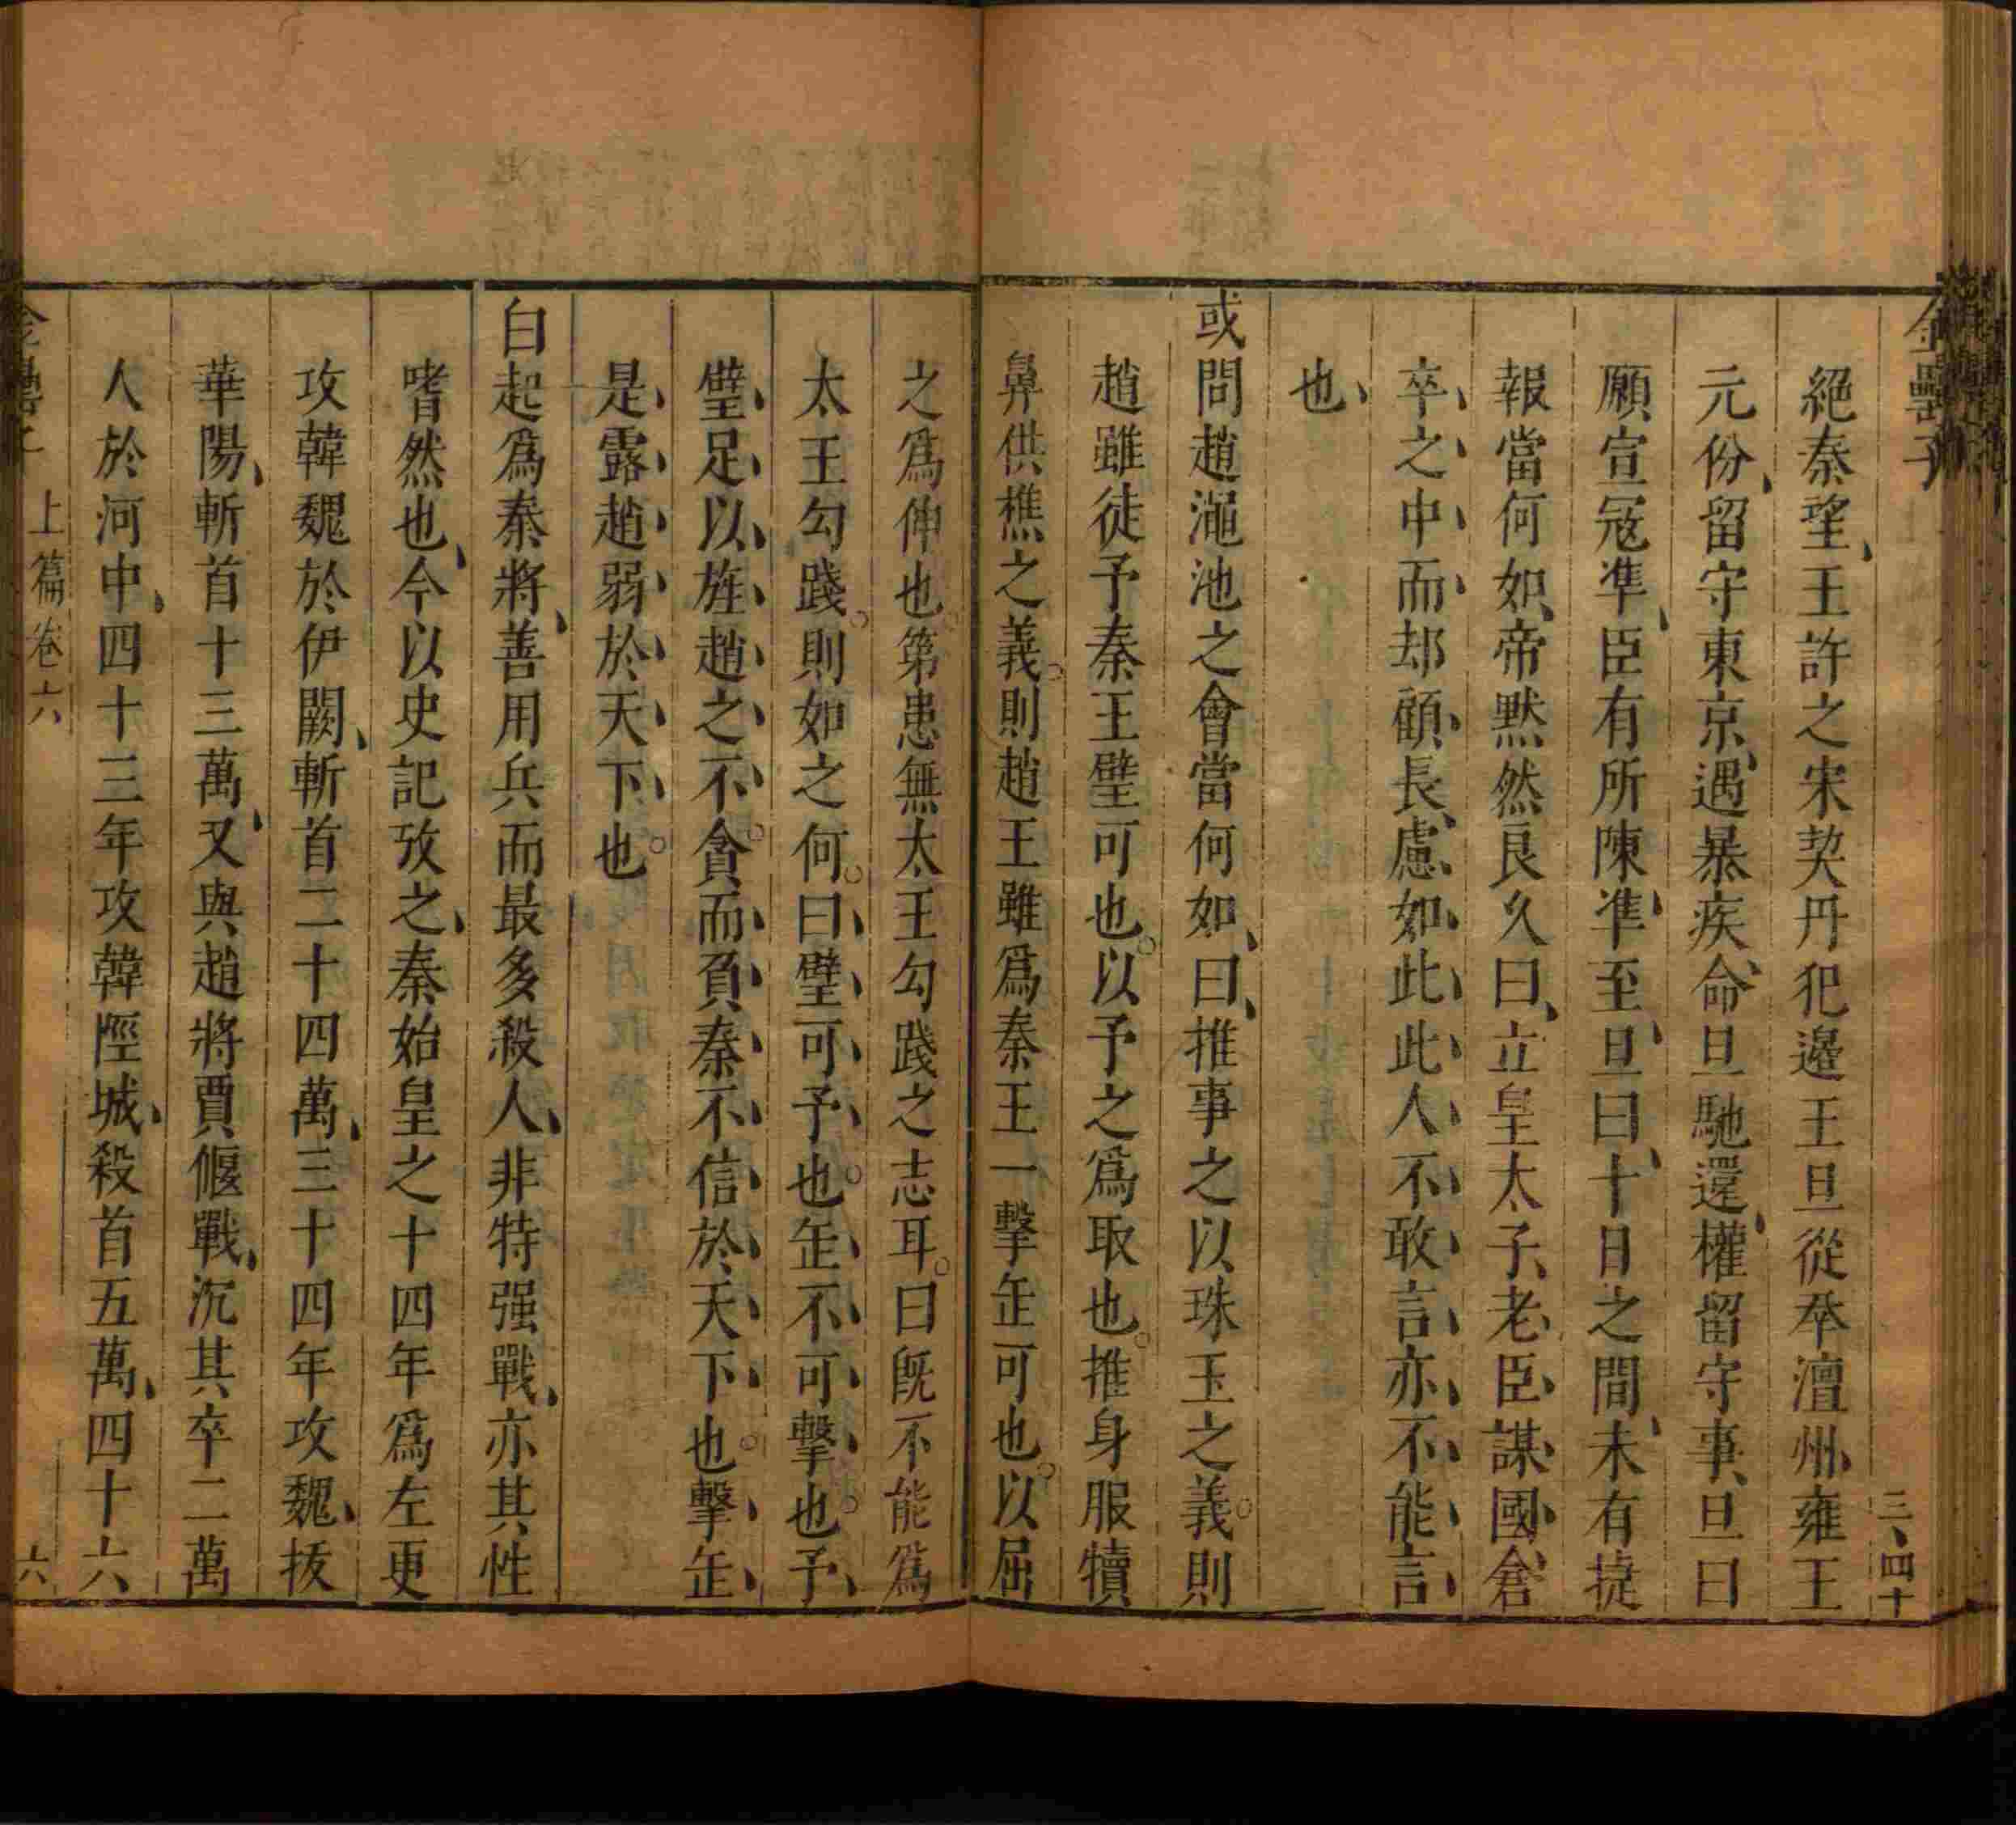 金罍子
三、四十
絕秦望、王許之宋契丹犯邊王旦從幸澶州、雍王
元份、留守東京、遇暴疾、命旦馳還、權留守事、旦曰
願宣冦凖、臣有所陳、凖至、旦曰、十日之間、未有捷
報當何如、帝黙然良久曰、立皇太子、老臣謀國、倉
卒之中而却顧長慮如此此人不敢言亦不能言
也、
或問趙澠池之會當何如、曰、推事之以珠玉之義。則
趙雖徒予秦王璧可也。以予之爲取也。推身服犢
鼻供樵之義。則趙王雖爲秦王一擊缶可也。以屈
之爲伸也。第患無太王勾踐之志耳。曰旣不能爲
太王勾踐。則如之何。曰、璧可予也。缶不可擊也。予
璧足以旌趙之不貪。而負秦不信於天下也。擊缶
是露趙弱於天下也。
白起爲秦將、善用兵而最多殺人、非特强戰、亦其性
嗜然也、今以史記攷之、秦始皇之十四年爲左更
攻韓魏於伊闕、斬首二十四萬、三十四年攻魏、抜
華陽、斬首十三萬、又與趙將賈偃戰、沉其卒二萬
人於河中、四十三年攻韓陘城、殺首五萬、四十六
上篇卷六
六